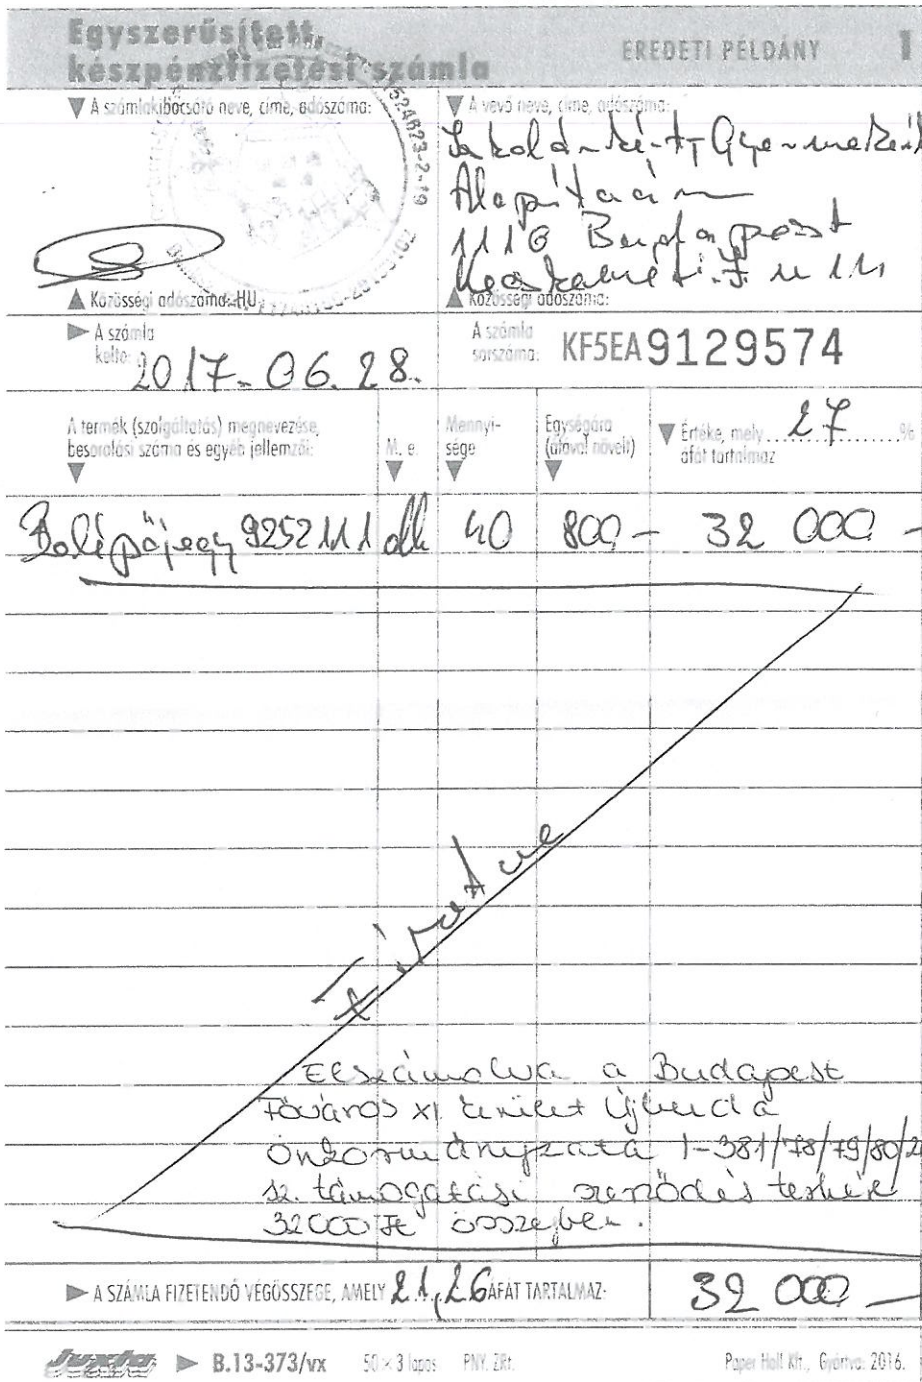 Egyszerűsített
készpénzfizetési számla
EREDETI PÉLDÁNY 1
▼ A számlakibocsátó neve, címe, adószáma:
▼ A vevő neve, címe, adószáma:
Alapítvány
1116 Budapest
Kecskeméti J. u 14
▲ Közösségi adószáma: HU
▲ Közösségi adószáma:
▶ A számla
kelte: 2017-06.28.
A számla
sorszáma: KF5EA9129574
A termék (szolgáltatás) megnevezése,
besorolási száma és egyéb jellemzői:
M. e.
Mennyi-
sége
Egységára
(áfával növelt)
▼ Értéke, mely 27 %
áfát tartalmaz
Belépőjegy 9252111 db 40 800- 32 000-
Fizetve
Elszámolva a Budapest
Főváros XI kerület Újbuda
Önkormányzata 1-381/78/79/80/2
sz. támogatási szerződés terhére
32000 Ft összegben.
▶ A SZÁMLA FIZETENDŐ VÉGÖSSZEGE, AMELY 21,26 ÁFÁT TARTALMAZ: 32 000-
Juxta ▶ B.13-373/vx 50×3 lapos PNY. ZRt. Paper Holl Kft., Gyártva: 2016.